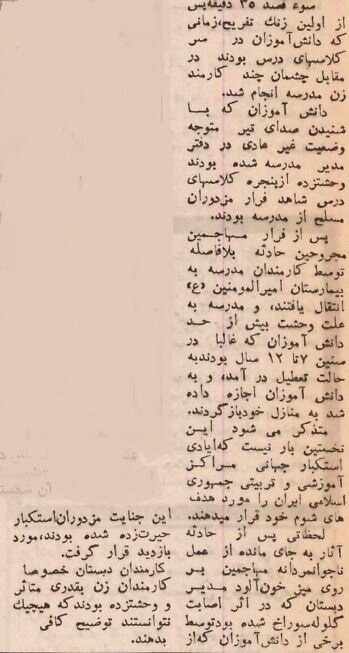 سوء قصد ۳۵ دقیقه‌پس
از اولین زنگ تفریح،زمانی
که دانش‌آموزان در سر
کلاسهای درس بودند در
مقابل چشمان چند کارمند
زن مدرسه انجام شد.
دانش آموزان که بــا
شنیدن صدای تیر متوجه
وضعیت غیر عادی در دفتر
مدیر مدرسه شده بودند
وحشتزده ازپنجره کلاسهای
درس شاهد فرار مزدوران
مسلح از مدرسه بودند.
پس از فرار مهـاجمین
مجروحین حادثه بلافاصله
توسط کارمندان مدرسه به
بیمارستان امیرالمومنین «ع»
انتقال یافتند، و مدرسه به
علت وحشت بیش از حــد
دانش آموزان که غالبا در
سنین ۷تا ۱۲ سال بودندبه
حالت تعطیل در آمد، و به
دانش آموزان اجازه داده
شد به منازل خودبازگردند.
متذکر می شود ایــن
نخستین بار نیست که‌ایادی
استکبار جهانی مـراکـز
آموزشی و تربیتی جمهوری
اسلامی ایران را مورد هدف
های شوم خود قرار میدهند.
لحظاتی پس از حادثه
آثار به جای مانده از عمل
ناجوانمردانه مهاجمین بــر
روی میز خون‌آلود مدیـر
دبستان که در اثر اصابت
گلوله‌سوراخ شده بودتوسط
برخی از دانش‌آموزان که‌از
این جنایت مزدوران‌استکبار
حیرت‌زده شده بودند،مورد
بازدید قرار گرفت.
کارمندان دبستان خصوصا
کارمندان زن بقدری متاثر
و وحشتزده بودندکه هیچیك
نتوانستند توضیح کافی
بدهند.